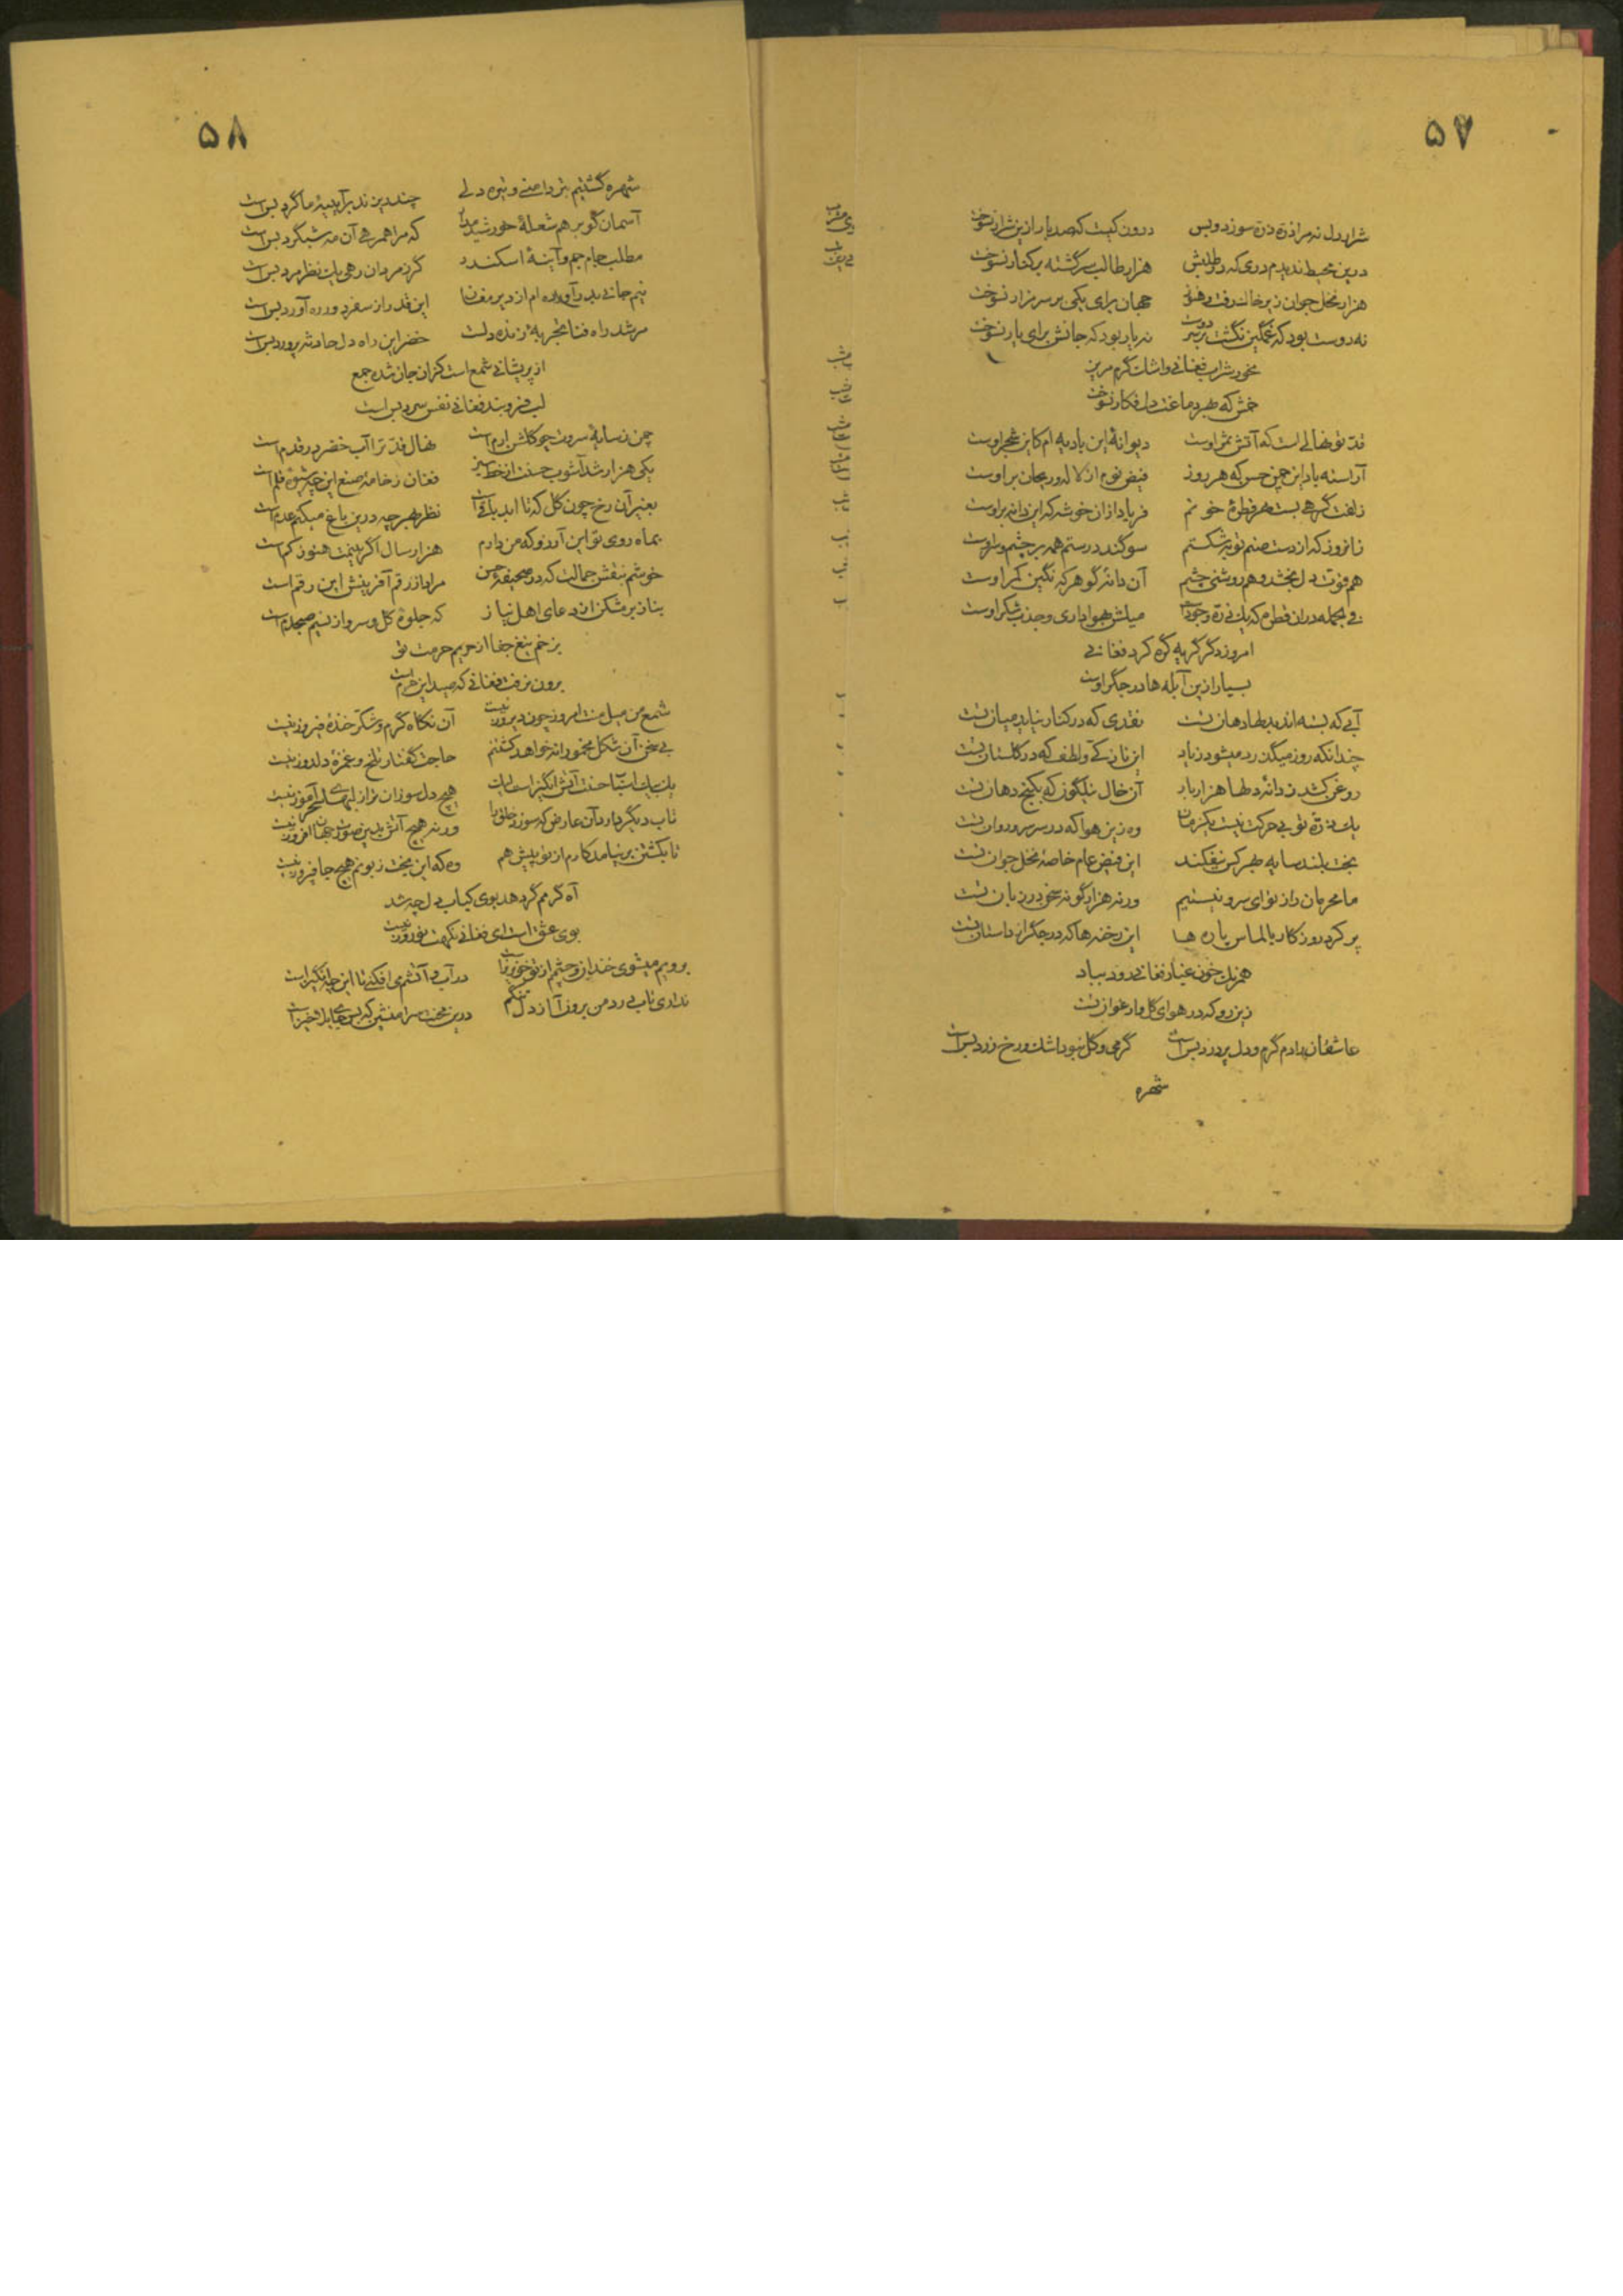 ۵۷
شرار دل نه مرا ذره ذره سوزد و بس درون کیست که صد بار ازین شرار نسوخت
درین محیط ندیدم دری که در طلبش هزار طالب سرگشته بر کنار نسوخت
هزار نخل جوان زیر خاک رفت و هنوز جهان برای یکی بر سر مزار نسوخت
نه دوست بود که غمگین نگشت بر دوست نه یار بود که جانش برای یار نسوخت
مخور شراب فغانی و اشک گرم مریز
خمش که بهر دماغت دل فکار نسوخت
قد تو نهالی است که آتش ثمر اوست دیوانهٔ این بادیه ام کاین شجر اوست
آراسته باد این چمن حسن که هر روز فیض نوم از لاله و ریحان بر اوست
زلفت گرهی بست بهر قطرهٔ خونم فریاد از ان خوشه که این دانه بر اوست
زانروز که از دست صنم توبه شکستم سوگند درستم همه بر چشم و سر اوست
هم قوت دل بخشد و هم روشنی چشم آن دانه گوهر که نگین کمر اوست
فی الجمله در ان قطره که یک ذره وجودست میلش بهواداری و جذب شکر اوست
امروز دگر گریه گره کرد فغانی
بسیار ازین آبله ها در جگر اوست
آبی که بسته اند بدلها دهان تست نقدی که در کنار نیاید میان تست
چندانکه روز میگذرد میشود زیاد این نازکی و لطف که در گلستان تست
روغن کشد ز دانه دلها هزار بار آن خال نیلگون که بکنج دهان تست
یک ذره تو بی حرکت نیست یکزمان وه زین هوا که در سر سرو روان تست
بخت بلند سایه بهر کس نیفکند این فیض عام خاصه نخل جوان تست
ما محرمان راز تو ای سرو نیستیم ورنه هزار گونه سخن در زبان تست
پر کرد روزگار بالماس پاره ها این رخنه ها که در جگر از داستان تست
همرنگ خون غبار فغانی رود بباد
زین رو که در هوای گل و ارغوان تست
عاشقان را دم گرم و دل پر درد بس است گر می و گل نبود اشک و رخ زرد بس است
شهره
۵۸
شهره گشتیم بتر دامنی و تیره دلی چند دیزند بر آیینهٔ ما گرد بس است
آسمان گو برهم شعلهٔ خورشید مدار که مرا همرهی آن مه شبگرد بس است
مطلب جام جم و آینهٔ اسکندر گر ز مردان رهی یک نظر مرد بس است
نیم جانی بدر آورده ام از دیر مغان این قدر از سفر دور ره آورد بس است
مرشد راه فنا تجربهٔ زنده دلست خضر این راه دل حادثه پرورد بس است
از پریشانی شمع است کزان جان شده جمع
لب فرو بند فغانی نفس سرد بس است
چمن ز سایهٔ سروت چو گلشن ارم است نهال قد ترا آب خضر در قدم است
یکی هزار شد آشوب حسنت از خط سبز فغان ز خامهٔ صنع این چه شیوهٔ قلم است
بغیر آن رخ چون گل که تا ابد باقیست نظر بهر چه درین باغ میکنم عدم است
بماه روی تو این آرزو که من دارم هزار سال اگر بینمت هنوز کم است
خوشم بنقش جمالت که در صحیفهٔ حسن مراد از رقم آفرینش این رقم است
بناز بر مشکن از دعای اهل نیاز که جلوهٔ گل و سرو از نسیم صبحدم است
بزخم تیغ جفا از حریم حرمت تو
برون نرفت فغانی که صید این حرم است
شمع من میل منت امروز چون دیروز نیست آن نگاه گرم و شکر خندهٔ فیروز نیست
بی سخن آن شکل مخمورانه خواهد کشتنم حاجت گفتار تلخ و غمزهٔ دلدوز نیست
یک بیک اسباب حسنت آتش انگیز است هیچ دل سوزان تر از لبهای سحر آموز نیست
تاب دیگر دارد آن عارض که سوزد خلق را ورنه هیچ آتش بدین صورت جهان افروز نیست
تا بکشتن بر نیامد کارم از تو پیش هم وه که این بخت زبونم هیچ جا فیروز نیست
آه گرمم گر دهد بوی کباب دل چه شد
بوی عشق است ای فغانی نکهت نوروز نیست
برویم میشوی خندان و چشم از تو خونریز است در آب و آتشم می افکنی تا این چه انگیز است
نداری تاب درد من برو ز آزار دل تنگم درین محنت سرا منشین که بس جای بلا خیز است